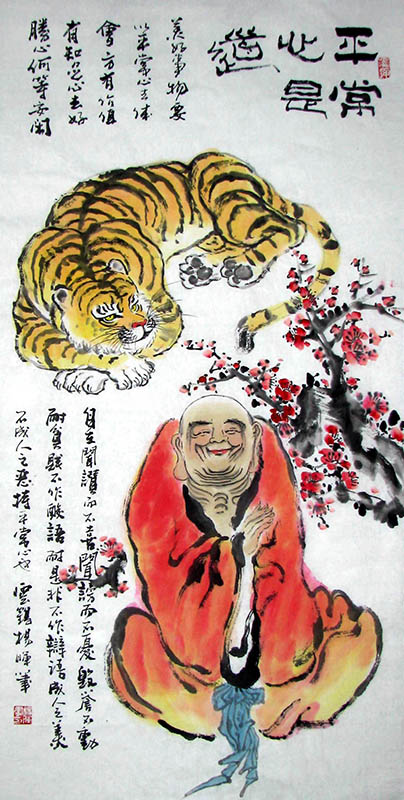 平常
心是
道
美好事物要
以平常心去体
會方有价值
有知足心去好
勝心何等安闲
自在聞讃而不喜聞謗而不憂毀誉不動
耐貧賤不作酸語耐是非不作辯語成人之美
不成人之惡持平常心也 雲錫楊暉筆